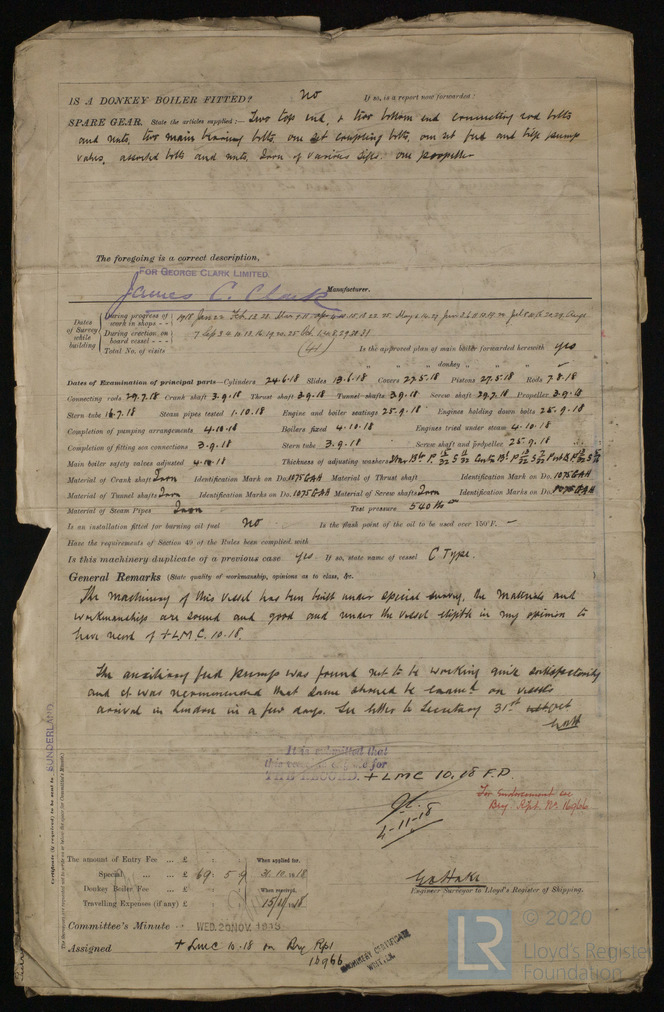 IS A DONKEY BOILER FITTED? No If so, is a report now forwarded?
SPARE GEAR. State the articles supplied:— Two top end, & two bottom end connecting rod bolts
and nuts, two main bearing bolts, one set coupling bolts, one set feed and bilge pump
valves, assorted bolts and nuts, Iron of various sizes. one propeller
The foregoing is a correct description,
FOR GEORGE CLARK LIMITED.
James C. Clark Manufacturer.
Dates of Survey while building
During progress of work in shops - - 1918 Jan 22 Feb
During erection on board vessel - - -
Total No. of visits (41) Is the approved plan of main boiler forwarded herewith yes
" " " donkey " " " —
Dates of Examination of principal parts—Cylinders 24.6.18 Slides 13.6.18 Covers 27.5.18 Pistons 27.5.18 Rods 7.8.18
Connecting rods 29.7.18 Crank shaft 3.9.18 Thrust shaft 3.9.18 Tunnel shafts 3.9.18 Screw shaft 29.7.18 Propeller 3.9.18
Stern tube 16.7.18 Steam pipes tested 1.10.18 Engine and boiler seatings 25.9.18 Engines holding down bolts 25.9.18
Completion of pumping arrangements 4.10.18 Boilers fixed 4.10.18 Engines tried under steam 4.10.18
Completion of fitting sea connections 3.9.18 Stern tube 3.9.18 Screw shaft and propeller 25.9.18
Main boiler safety valves adjusted 4.10.18 Thickness of adjusting washers
Material of Crank shaft Iron Identification Mark on Do. 1075GAH Material of Thrust shaft Identification Mark on Do. 1075GAH
Material of Tunnel shafts Iron Identification Marks on Do. 1075GAH Material of Screw shafts Iron Identification Marks on Do. 1075GAH
Material of Steam Pipes Iron Test pressure 540 lbs
Is an installation fitted for burning oil fuel No Is the flash point of the oil to be used over 150°F. —
Have the requirements of Section 49 of the Rules been complied with
Is this machinery duplicate of a previous case yes If so, state name of vessel C Type.
General Remarks (State quality of workmanship, opinions as to class, &c.
The machinery of this vessel has been built under special survey, the materials and
workmanships are sound and good and under the vessel eligible in my opinion to
have record of +LMC. 10.18.
The auxiliary feed pumps was found not to be working quite satisfactorily
and it was recommended that same should be exam'd on vessels
arrival in London in a few days. See letter to Secretary 31st Oct
GAH
It is submitted that
this vessel is eligible for
THE RECORD. + LMC 10.18 F.D.
4-11-18
For endorsement see
Bry. Rpt. No. 16966
SUNDERLAND
Certificate (if required) to be sent to
The amount of Entry Fee ... £ : : When applied for,
Special ... ... £ 69 . 5 . 9 31.10.1918
Donkey Boiler Fee ... £ : : When received,
Travelling Expenses (if any) £ : : 15/11/1918
GA Hake
Engineer Surveyor to Lloyd's Register of Shipping.
Committee's Minute WED. 20 NOV. 1918
Assigned + LMC 10.18 on Bry Rpt
16966
MACHINERY CERTIFICATE
WRITTEN.
LR
© 2020
Lloyd's Register
Foundation